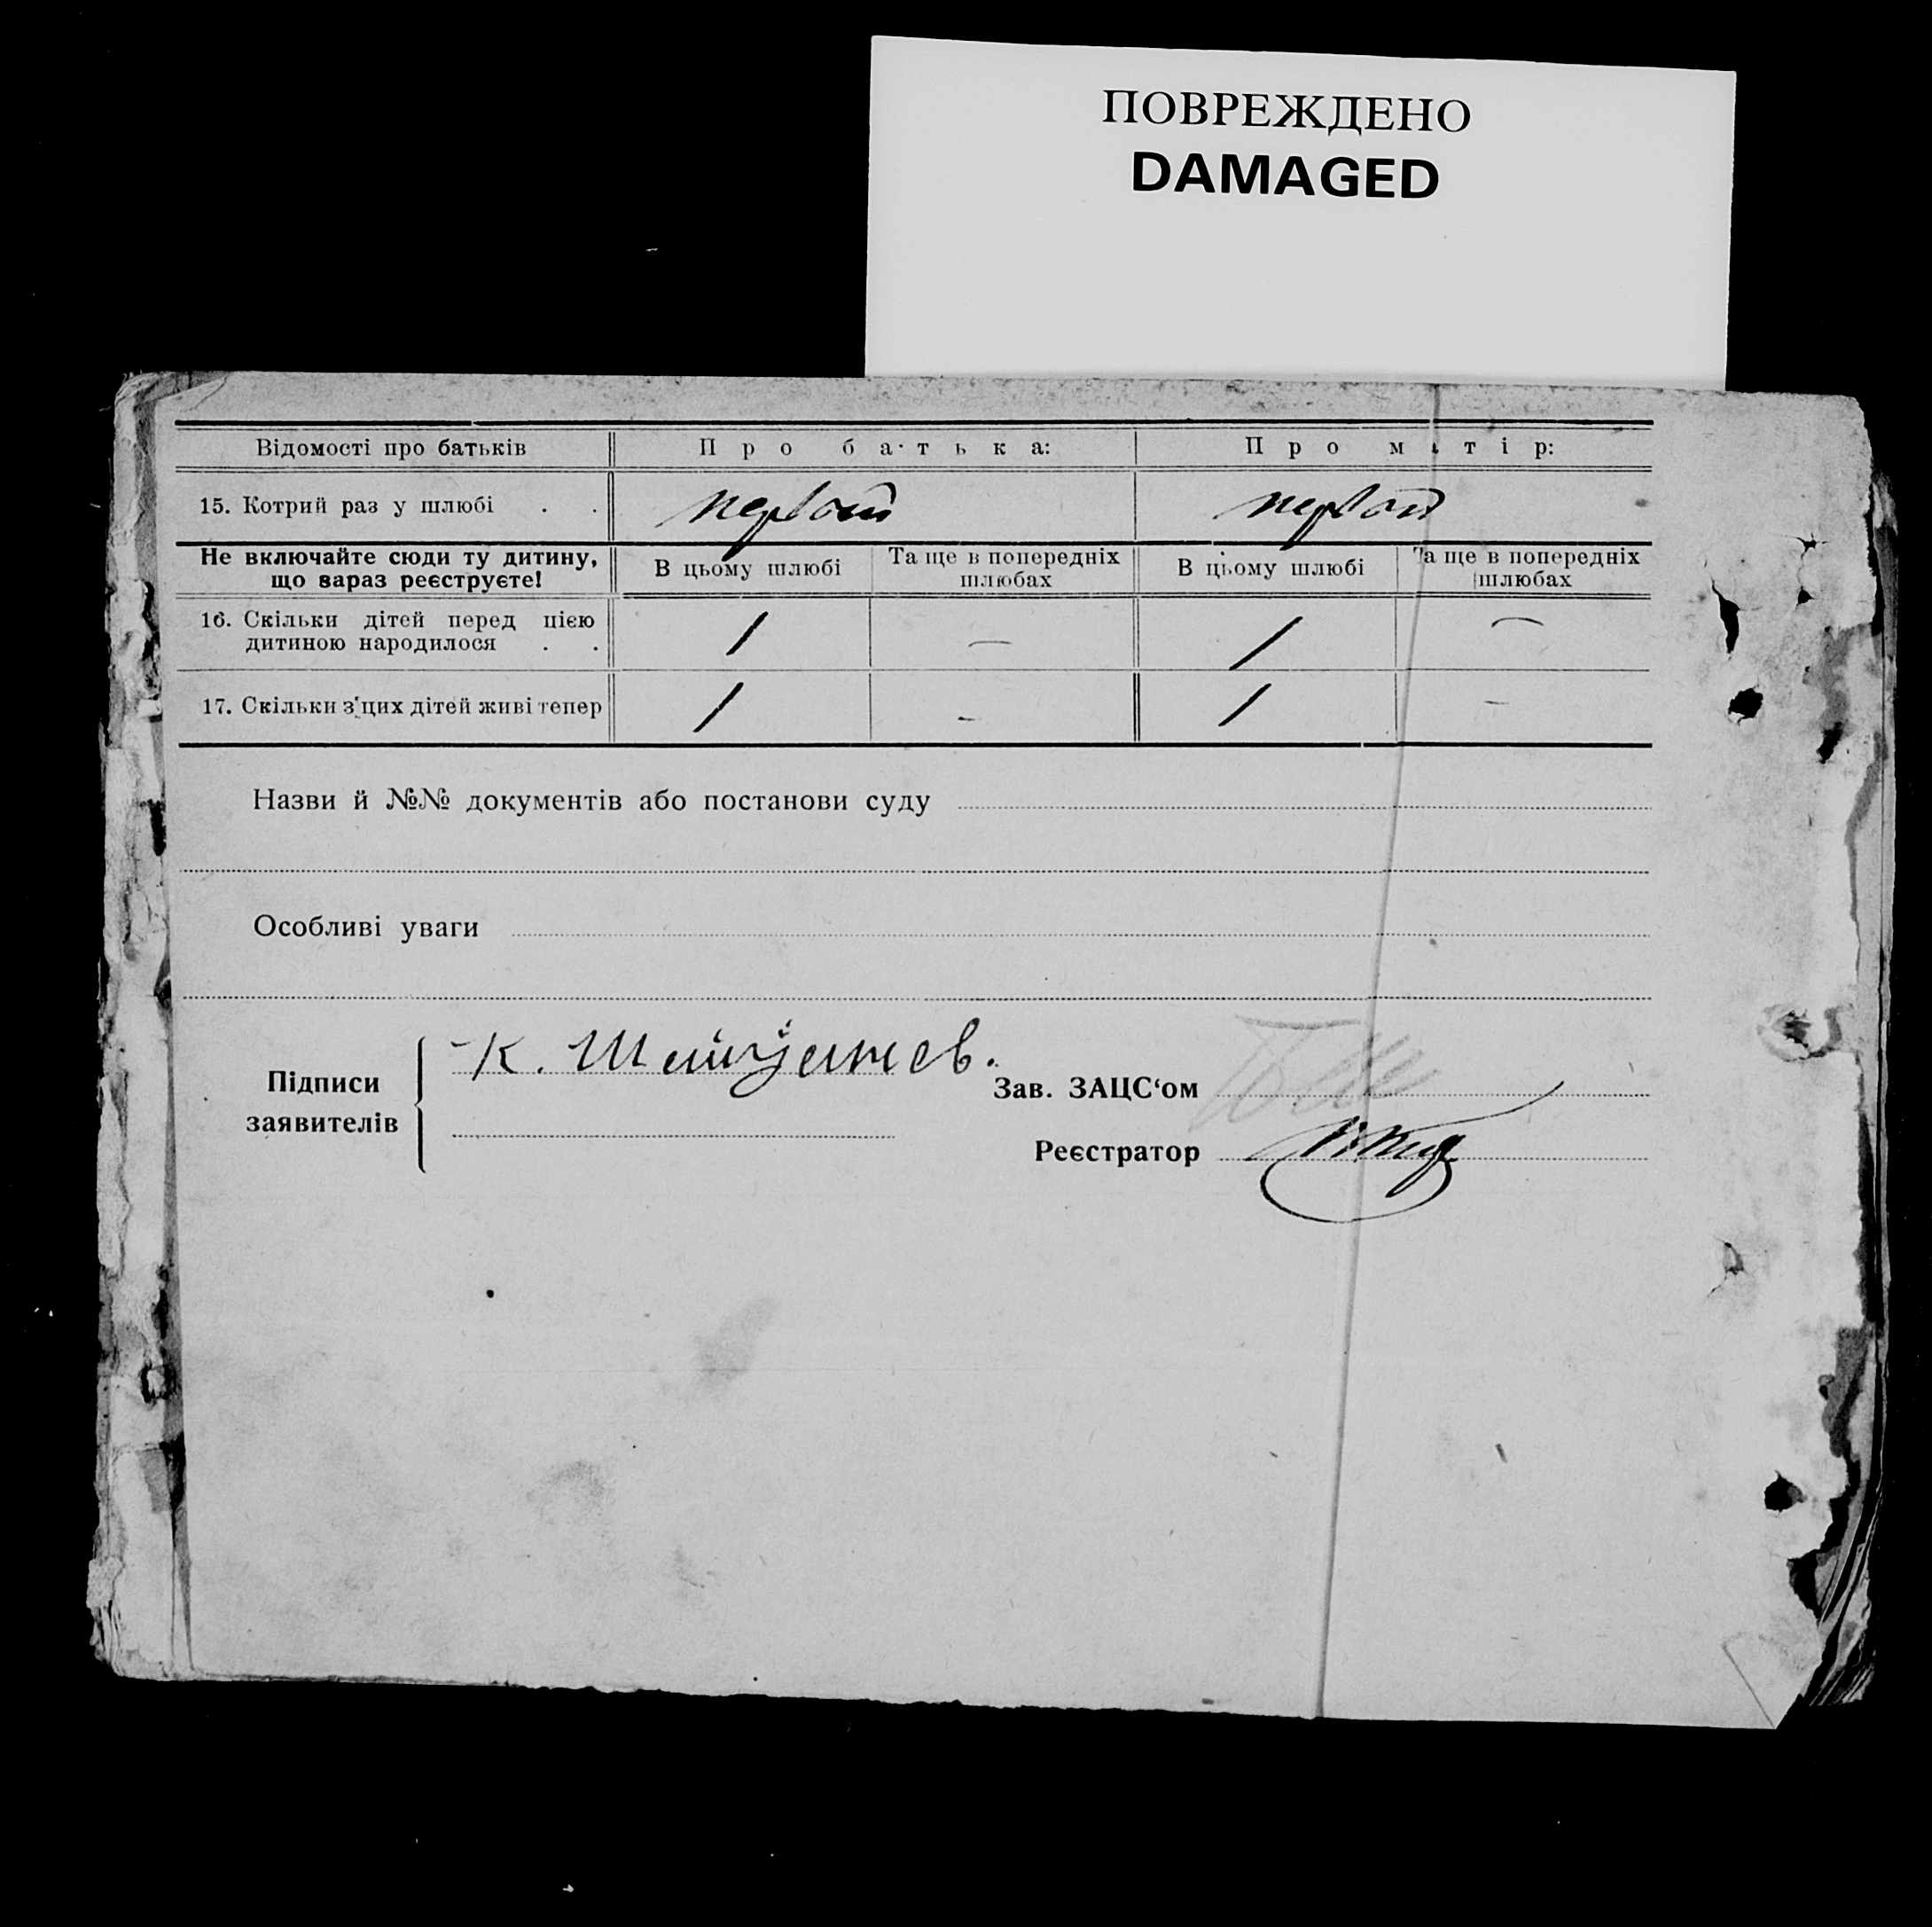 ПОВРЕЖДЕНО
DAMAGED
Відомості про батьків Про батька: Про матір:
15. Котрий раз у шлюбі . . первый первый
Не включайте сюди ту дитину, що зараз реєструєте! В цьому шлюбі Та ще в попередніх шлюбах В цьому шлюбі Та ще в попередніх шлюбах
16. Скільки дітей перед цією
дитиною народилося . . 1 — 1 —
17. Скільки з цих дітей живі тепер 1 - 1 -
Назви й №№ документів або постанови суду
Особливі уваги
К.
Підписи
заявителів
Зав. ЗАЦС‘ом
Реєстратор